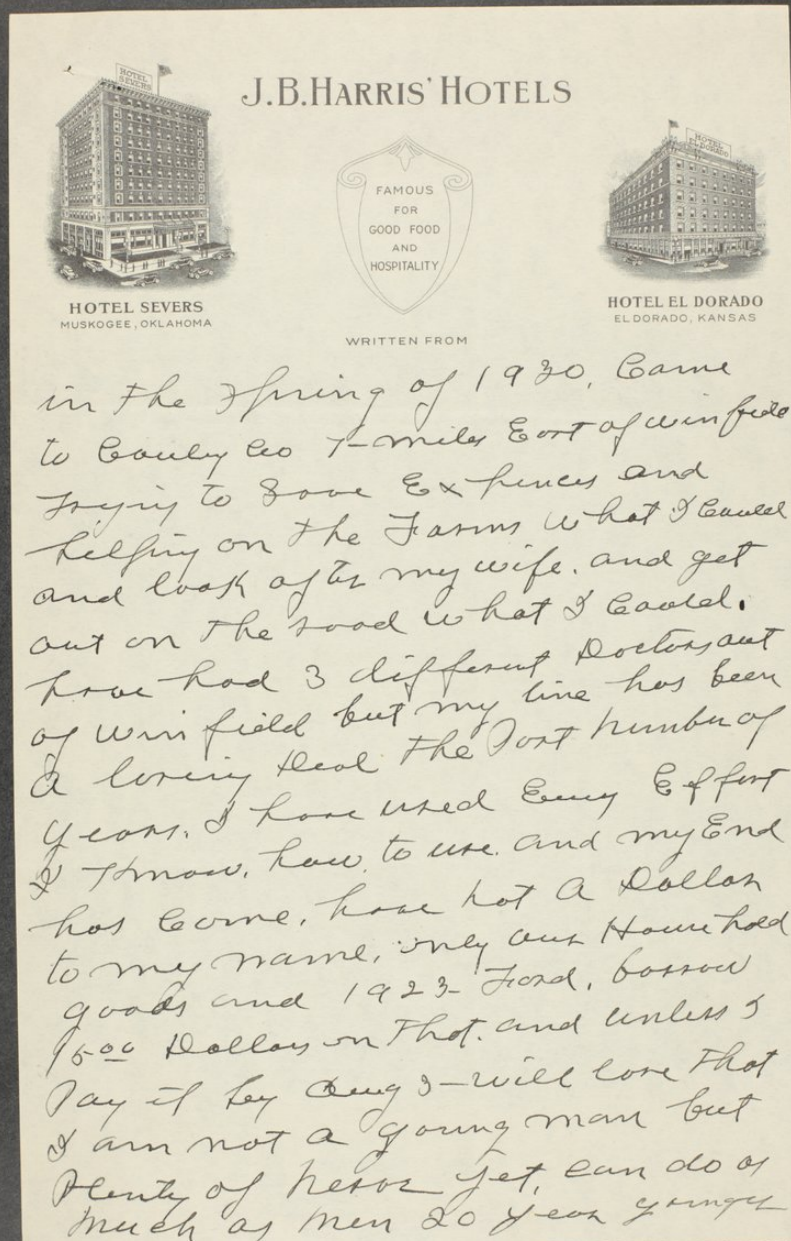 HOTEL SEVERS
J.B. HARRIS' HOTELS
HOTEL EL DORADO
FAMOUS
FOR
GOOD FOOD
AND
HOSPITALITY
HOTEL SEVERS
MUSKOGEE, OKLAHOMA
HOTEL EL DORADO
EL DORADO, KANSAS
WRITTEN FROM
in the Spring of 1930, Came
to Couley Co 7-miles East of Winfield
trying to Save Expences and
helping on the Farms what I Could
and look after my wife. and get
out on the road what I Could.
have had 3 different Doctors out
of Winfield but my line has been
a losing Deal the Past number of
years. I have used Every Effort
I Know, how, to use. and my End
has Come, have not a Dollar
to my name, only our Household
goods and 1923- Ford, borrow
15.00 Dollars on that. and unless I
Pay it by Aug will lose that
I am not a young man but
Plenty of nerve yet, can do as
much as men 20 year younger